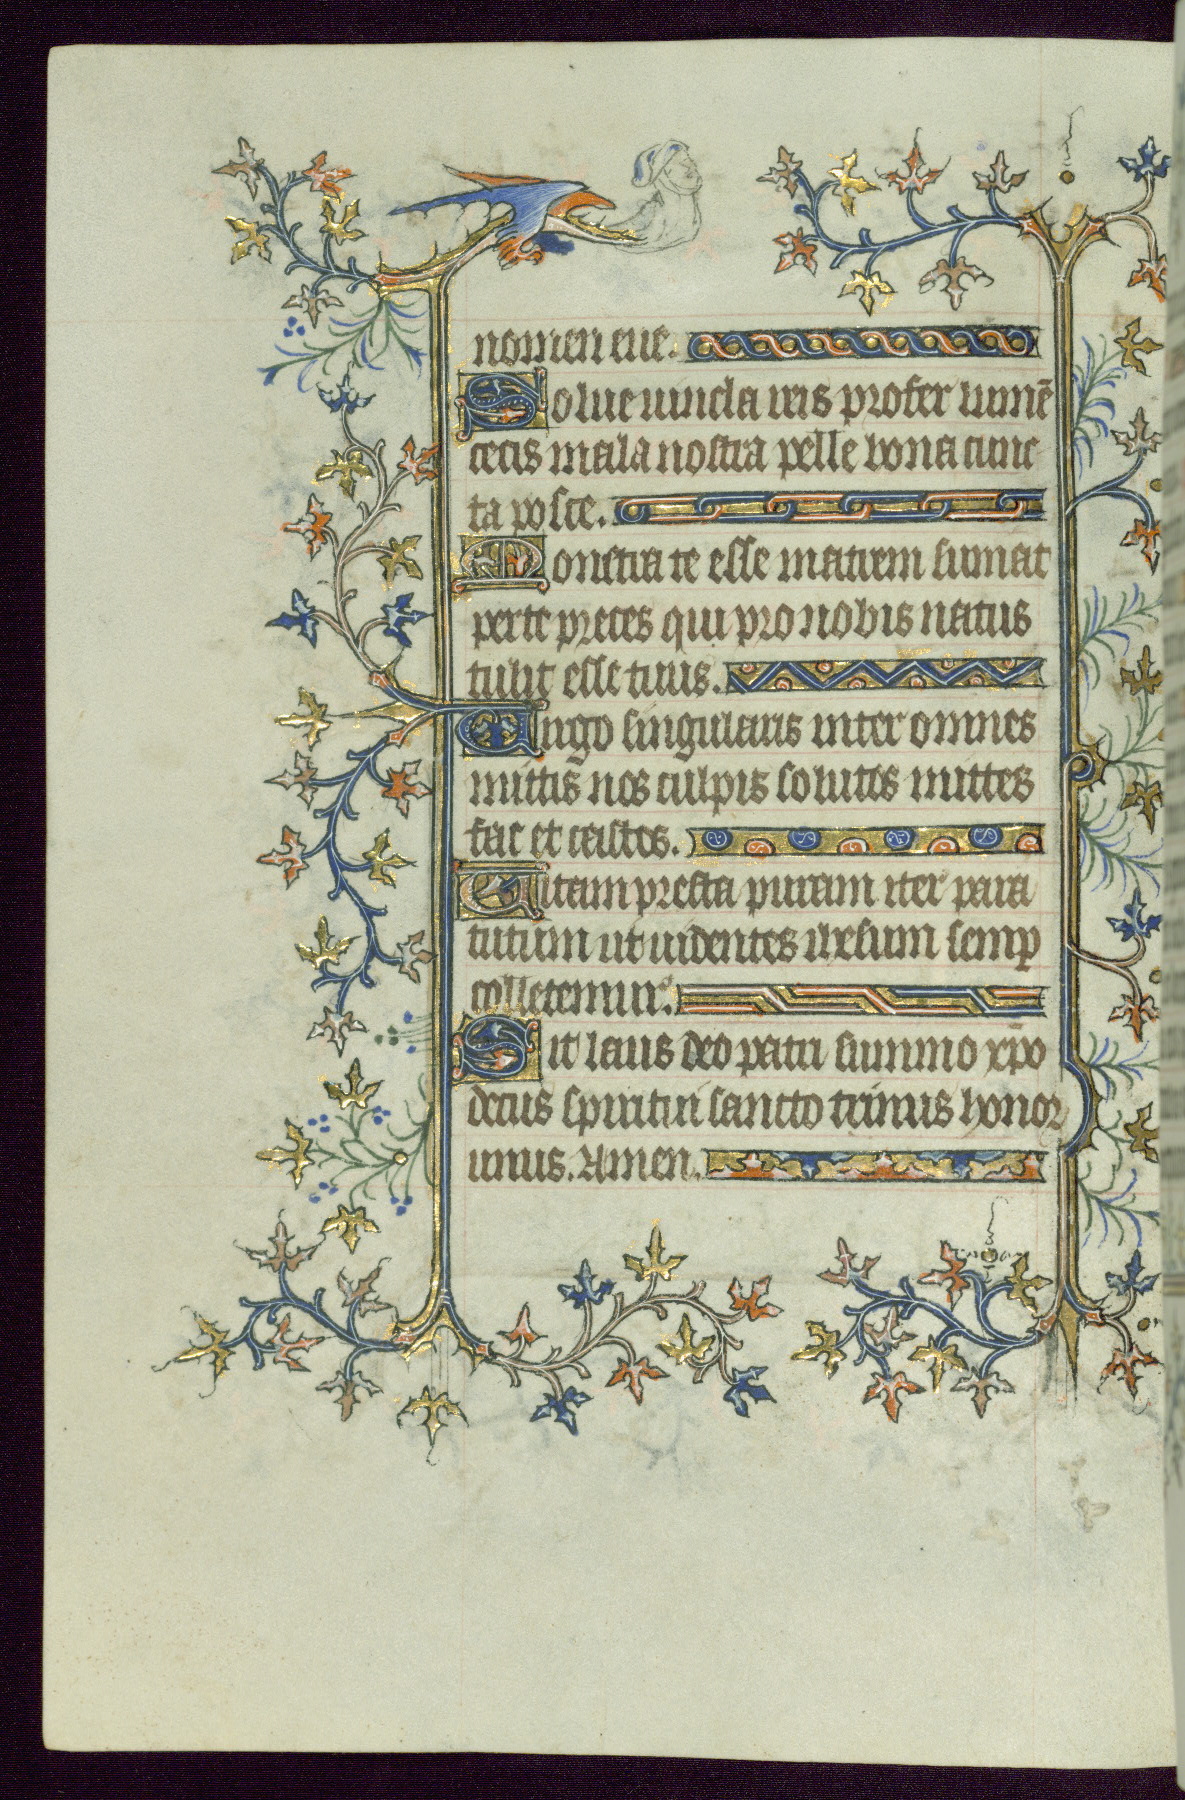 nomen eue.
Solue uincla reis profer lumē
cecis mala nostra pelle bona cunc
ta posce.
Monstra te esse matrem sumat
per te preces qui pro nobis natus
tulit esse tuus.
Uirgo singularis inter omnes
mittis nos culpis solutos mittes
fac et castos.
Uitam presta puram iter para
tutum ut uidentes ihesum semp
colletemur.
Sit laus deo patri summo xpo
decus spiritui sancto trinus honor
unus. Amen.